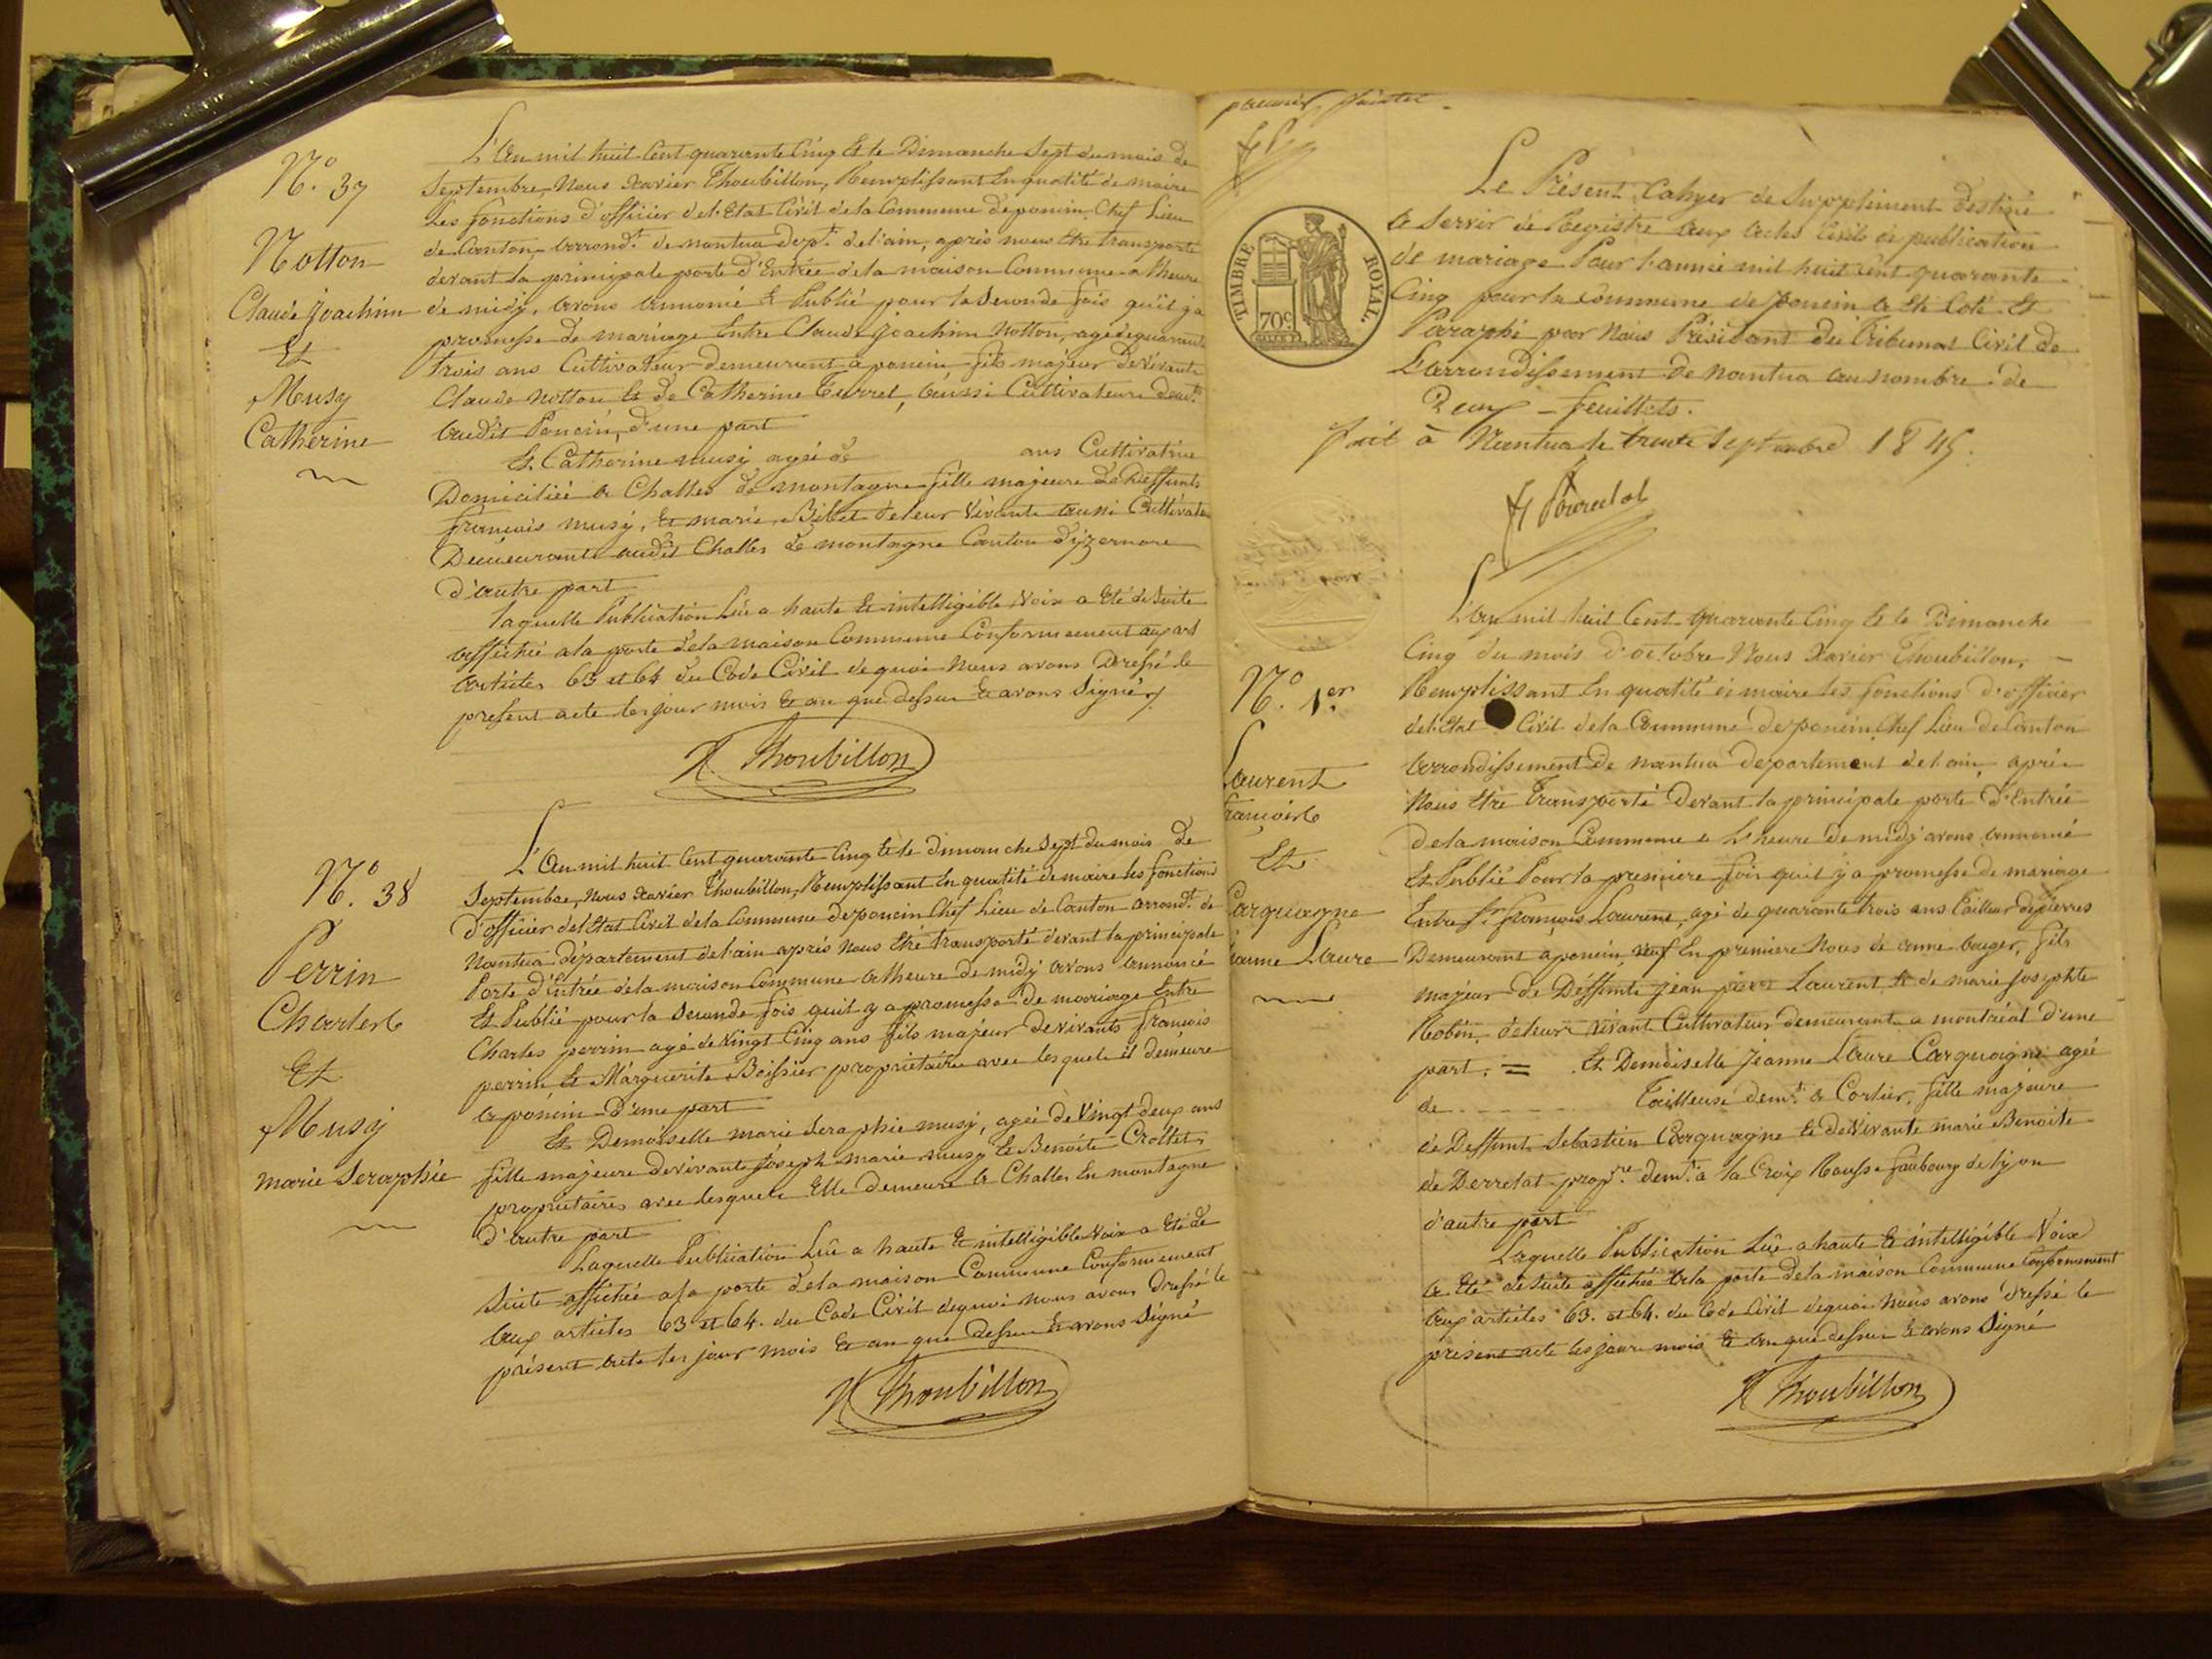 N.° 37
Notton
Claude Joachim
Et
Musy
Catherine
L'An mil huit Cent quarante Cinq Et le Dimanche Sept du mois de
Septembre, Nous Xavier Thoubillon, Remplissant En qualité de maire
Les fonctions d'officier de l'Etat Civil de la Commune de poncin Chef Lieu
de Canton arrond.t de nantua dep.t de l'ain, après nous Etre transporté
devant la principale porte d'Entrée de la maison Commune a l'heure
de midy, avons annoncé & Publié pour la Seconde fois qu'il y a
promesse de mariage Entre Claude Joachim Notton, agé de quarante
trois ans Cultivateur demeurant a poncin fils majeur de vivants
Claude Notton & de Catherine Turrel, aussi Cultivateurs dem.t
audit Poncin, d'une part
Et Catherine musy agée de ans Cultivatrice
Domiciliée a Challes de montagne fille majeure de Deffunts
françois musy, & marie Bibet de leur vivants aussi Cultivateurs
Demeurants audit Challes de montagne Canton d'yzernore
d'autre part
Laquelle Publication Lüe a haute & intelligible Voix a Eté de Suite
affichée a la porte de la maison Commune Conformement aux
articles 63 et 64 du Code Civil de quoi Nous avons Dressé le
présent acte les jour mois & an que dessus & avons Signé
X Thoubillon
N.° 38
Perrin
Charles
Et
Musy
marie Seraphie
L'An mil huit Cent quarante Cinq & le dimanche Sept du mois de
Septembre, Nous Xavier Thoubillon, Remplissant En qualité de maire les fonctions
d'officier de l'Etat Civil de la Commune de poncin Chef Lieu de Canton arrond.t de
Nantua département de l'ain après Nous Etre transporté devant la principale
Porte d'Entrée de la maison Commune a l'heure de midy avons annoncé
Et Publié pour la Seconde fois qu'il y a promesse de mariage Entre
Charles perrin agé de Vingt Cinq ans fils majeur de vivants françois
perrin & Marguerite Boissier propriétaires avec lesquels il demeure
a poncin d'une part
Et Demoiselle marie Seraphie musy, agée de Vingt deux ans
fille majeure de vivants Joseph marie musy & Benoite Crollet,
propriétaires avec lesquels Elle demeure a Challes En montagne
d'autre part
Laquelle Publication Lüe a haute & intelligible Voix a Eté de
Suite affichée a la porte de la maison Commune Conformement
aux articles 63 et 64. du Code Civil de quoi nous avons Dressé le
présent acte les jour mois & an que Dessus & avons Signé
X Thoubillon
premier feuillet
TIMBRE ROYAL
70c
Le Présent Cahyer de Supplément Destiné
a Servir de Registre aux actes Civils de publication
de mariage Pour l'année mil huit Cent quarante
Cinq pour la Commune de poncin, a Eté Coté Et
Paraphé par Nous Président du Tribunal Civil de
L'arrondissement de Nantua au nombre de
Deux feuillets.
fait à Nantua le trente Septembre 1845.
N.° 1.er
Laurent
françois
Et
Carquagne
Jeanne Laure
L'an mil huit Cent quarante Cinq & le Dimanche
Cinq du mois d'octobre Nous Xavier Thoubillon,
Remplissant En qualité de maire les fonctions d'officier
de l'Etat Civil de la Commune de poncin Chef Lieu de Canton
arrondissement de Nantua departement de l'ain, après
Nous Etre Transporté Devant la principale porte d'Entrée
de la maison Commune a L'heure de midy avons annoncé
Et Publié Pour la premiere fois qu'il y a promesse de mariage
Entre S.r françois Laurent, agé de quarante trois ans Tailleur de pierres
Demeurant a poncin, veuf En premiere Noces de anne auger, fils
majeur de Deffunts Jean pierre Laurent & de marie Josephte
Robin, de leurs vivant Cultivateurs demeurants a montréal d'une
part. = Et Demoiselle Jeanne Laure Carquagne agée
de Tailleuse dem.t a Corlier, fille majeure
de Deffunt Sébastien Carquagne & de Vivante marie Benoite
de Derrelat prop.re dem.t à la Croix Rousse faubourg de Lyon
d'autre part
Laquelle Publication Lüe a haute & intelligible Voix
a Eté de Suite affichée a la porte de la maison Commune Conformement
aux articles 63. et 64. du Code Civil de quoi Nous avons Dressé le
présent acte les jour mois & an que dessus & avons Signé
X Thoubillon